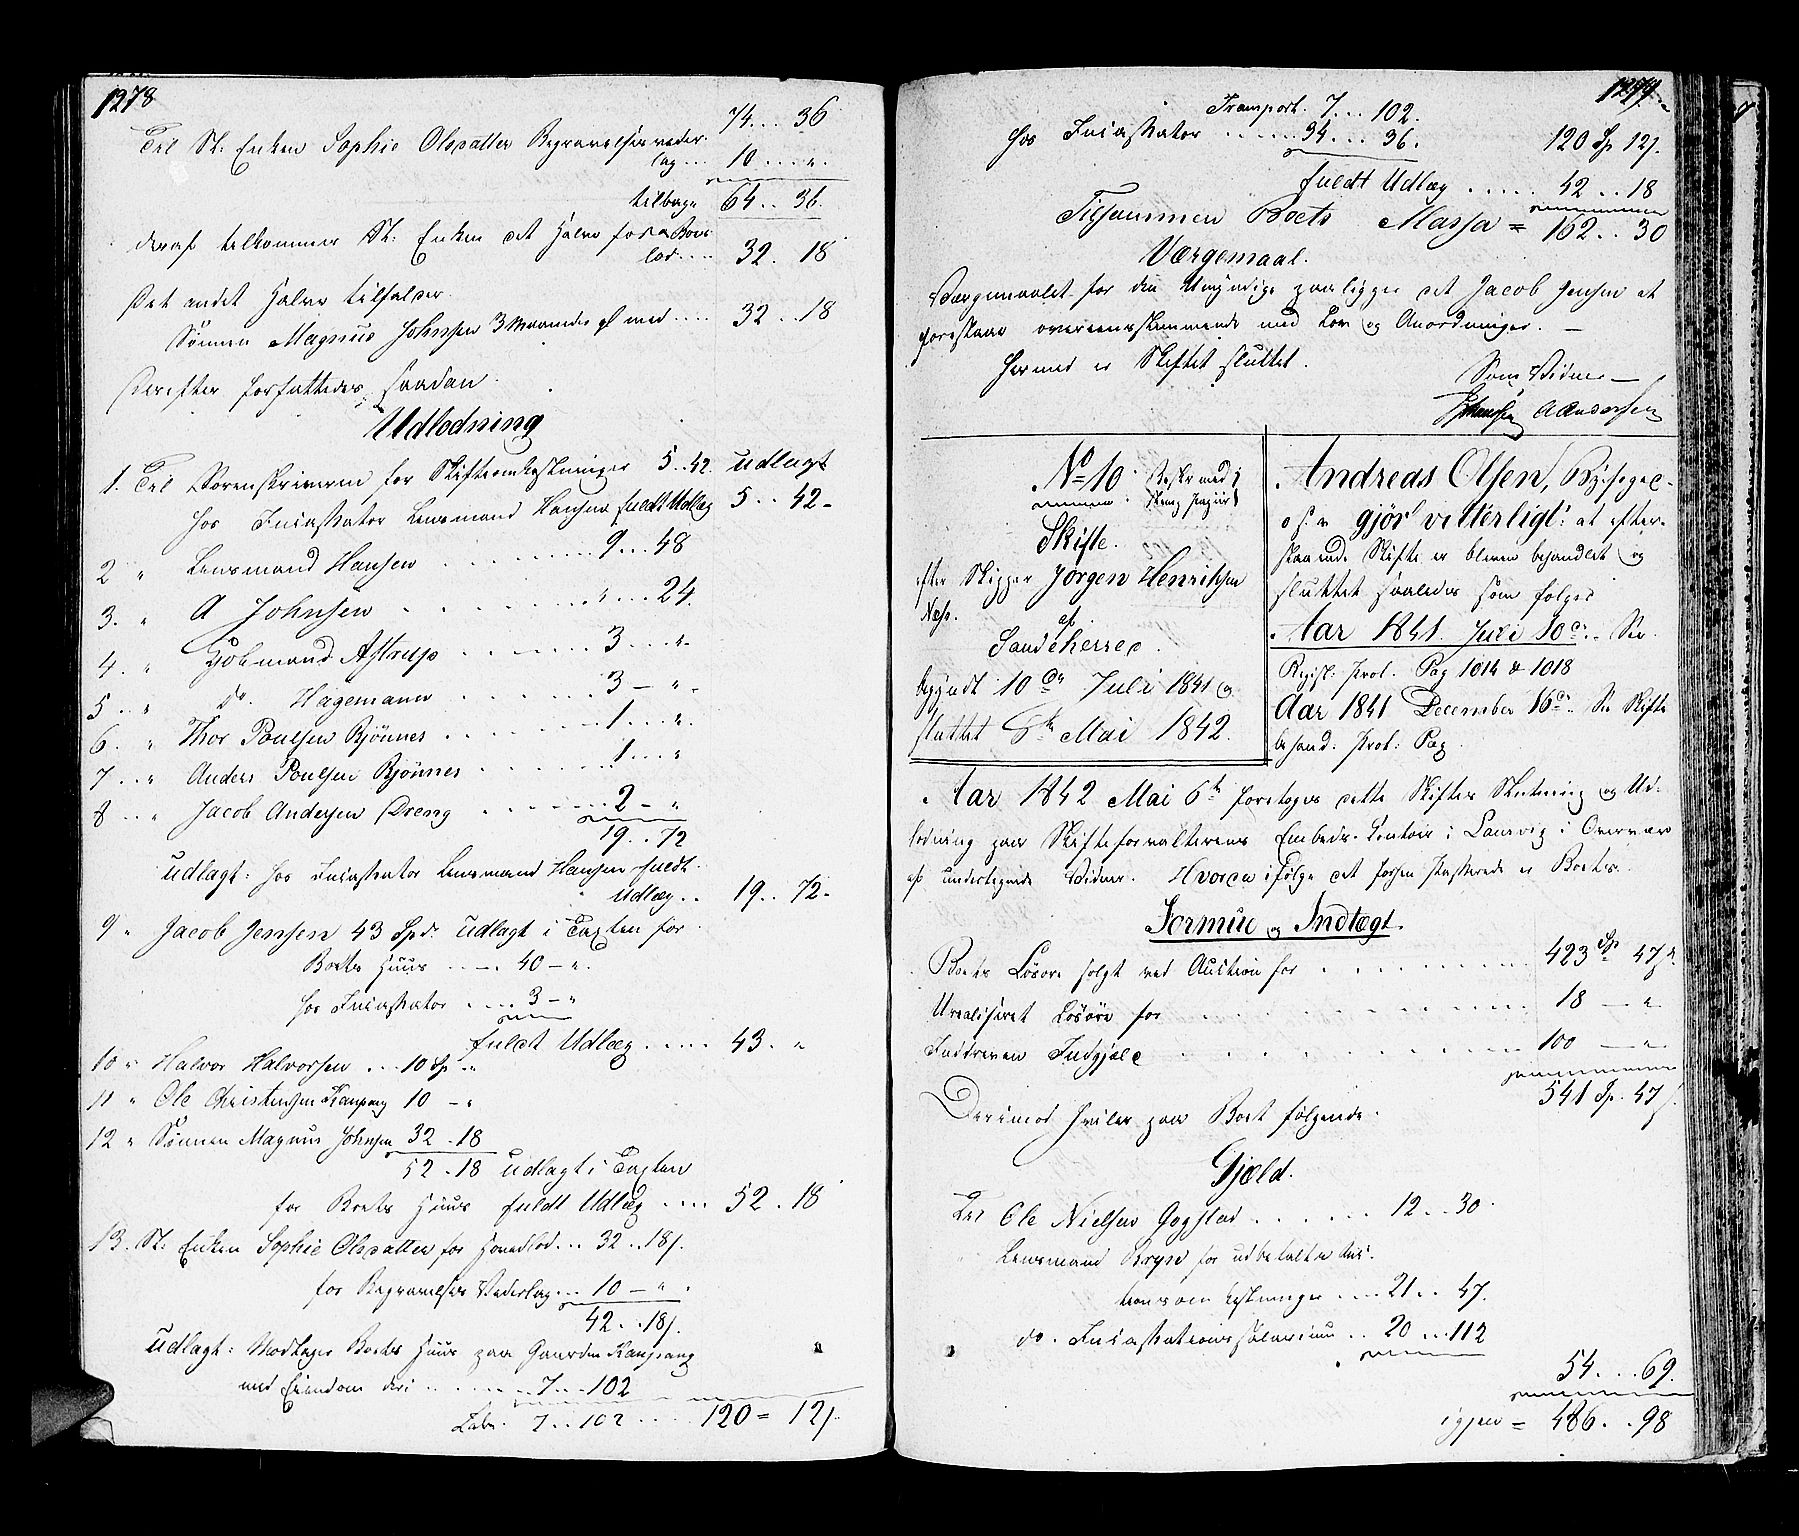 1278
74 . . . 36
Til St: Enken Sophie Olsdatter Begravelsesveder-
lag . . . 10 . . . "
tilbage 64 . . 36.
deraf tilkommer St: Enken det Halve for Boes
lod . . . . 32 . 18
Det andet Halve tilfalder
Sønnen Magnus Johnsen 3 Maaneder gl med . . . . 32 . . 18
Derefter forfattedes saadan
Udlodning
1. Til Sorenskriveren for Skifteomkostninger 5 . . 42. udlagt
hos Incassator Lensmand Hansen fuldt Udlæg 5 . . 42 -
2 " Lensmand Hansen . . . . . . 9 . . . 48
3. " A Johnsen . . . . . . " . . . 24.
4 " Kjøbmand Astrup . . . . . . 3 . . . "
5 " Do. Hagemann . . . . . . 3 - "
6. " Thor Poulsen Bjønnes . . . . . . 1 . . . "
7 . . " Anders Poulsen Bjønnes . . . . . . 1 . . . "
8 . . " Jacob Andersen Dreng . . . . . . 2 - "
19 . . 72
udlagt: hos Incassator Lensmand Hansen fuldt
Udlæg . . 19 . . 72 -
9 " Jacob Jensen 43 Spd. udlagt i Taxten for
Boets Huus . . . 40 - "
hos Incassator . . . . 3 - "
fuldt Udlæg . . . . . 43 . "
10 " Halvor Halvorsen . . . 10 Sp "
11 " Ole Christensen Kaupang 10 - "
12 " Sønnen Magnus Johnsen 32 . 18
52 . 18 udlagt i Taxten
for Boets Huus fuldt Udlæg . . . . 52 . 18
13. St: Enken Sophie Olsdatter for Hovedlod . . . 32 . . 18 ſ.
for Begravelses Vederlag . . . 10 - "
42 . . 18 ſ.
udlagt: Modtager Boets Huus paa Gaarden Kaupang
med Eiendom deri . . . . . . 7 . . 102
Latr. 7 . . 102 . . . . 120 = 12 ſ.
1279.
Transport. 7 . . . 102.
hos Incassator . . . . . . 34 . . . 36. 120 Sp 12 ſ.
fuldt Udlæg . . . . . 42 . . 18
Tilsammen Boets Massa = 162 . . 30
Værgemaal.
Værgemaalet for den Umyndige paaligger det Jacob Jensen at
forestaae overeensstemmende med Lov og Anordninger. -
Hermed er Skiftet sluttet.
Som Vidner -
Johansen A Andersen
No 10. Beskr med
Stemp Papiir
Skifte.
efter Skipper Jørgen Henrichsen
Næs. af
Sandeherred.
begyndt 10de Juli 1841 og
sluttet 6te Mai 1842.
Andreas Olsen, Byfoged
o s v gjør vitterligt: at efter-
staaende Skifte er bleven behandlet og
sluttet saaledes som følger
Aar 1841. Juli 10de. See
Regist. Prot. Pag 1014 & 1018
Aar 1841 December 16de. See Skifte
behand. Prot: Pag
Aar 1842 Mai 6te foretoges dette Skiftes Slutning og Ud-
lodning paa Skifteforvalterens Embeds-Contoir i Laurvig i Overvær
af undertegnede Vidner. Hvorda ifølge det forhen passerede er Boets
Formue og Indtægt.
Boets Løsøre solgt ved Auction for . . . . . . 423 Sp 47 ſ.
Urealiseret Løsøre for . . . . . . 18 - "
Inddreven Indgjæld . . . . . . 100 - "
541 Sp. 47 ſ.
Derimod hviler paa Boet følgende.
Gjæld.
Til Ole Nielsen Gogstad . . . . . . 12 . . 30.
Lensmand Bryn for udbetalte Auc-
tionsomkostninger . . . . 21 . . 47.
do. Incassationssalarium . . 20 . . 112
54 . . . 69.
igjen = 486 . . 98